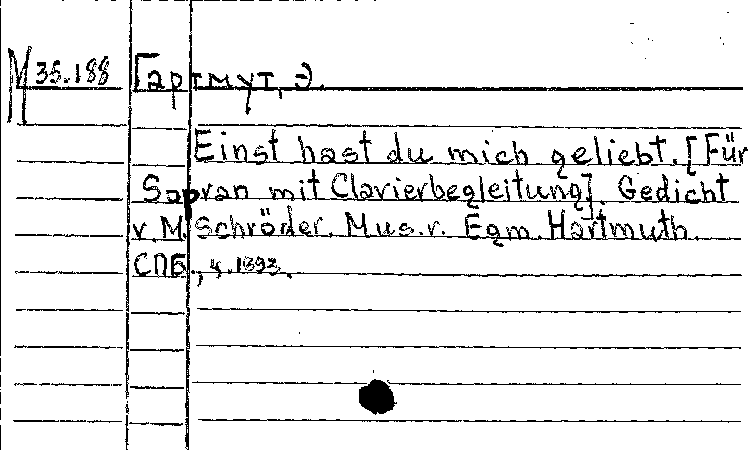 М 35.188 Гартмут, Э.
Einst hast du mich geliebt. [Für
Sopran mit Clavierbegleitung]. Gedicht
v. M. Schröder. Mus. v. Egm. Hartmuth.
СПБ., ц. 1893.